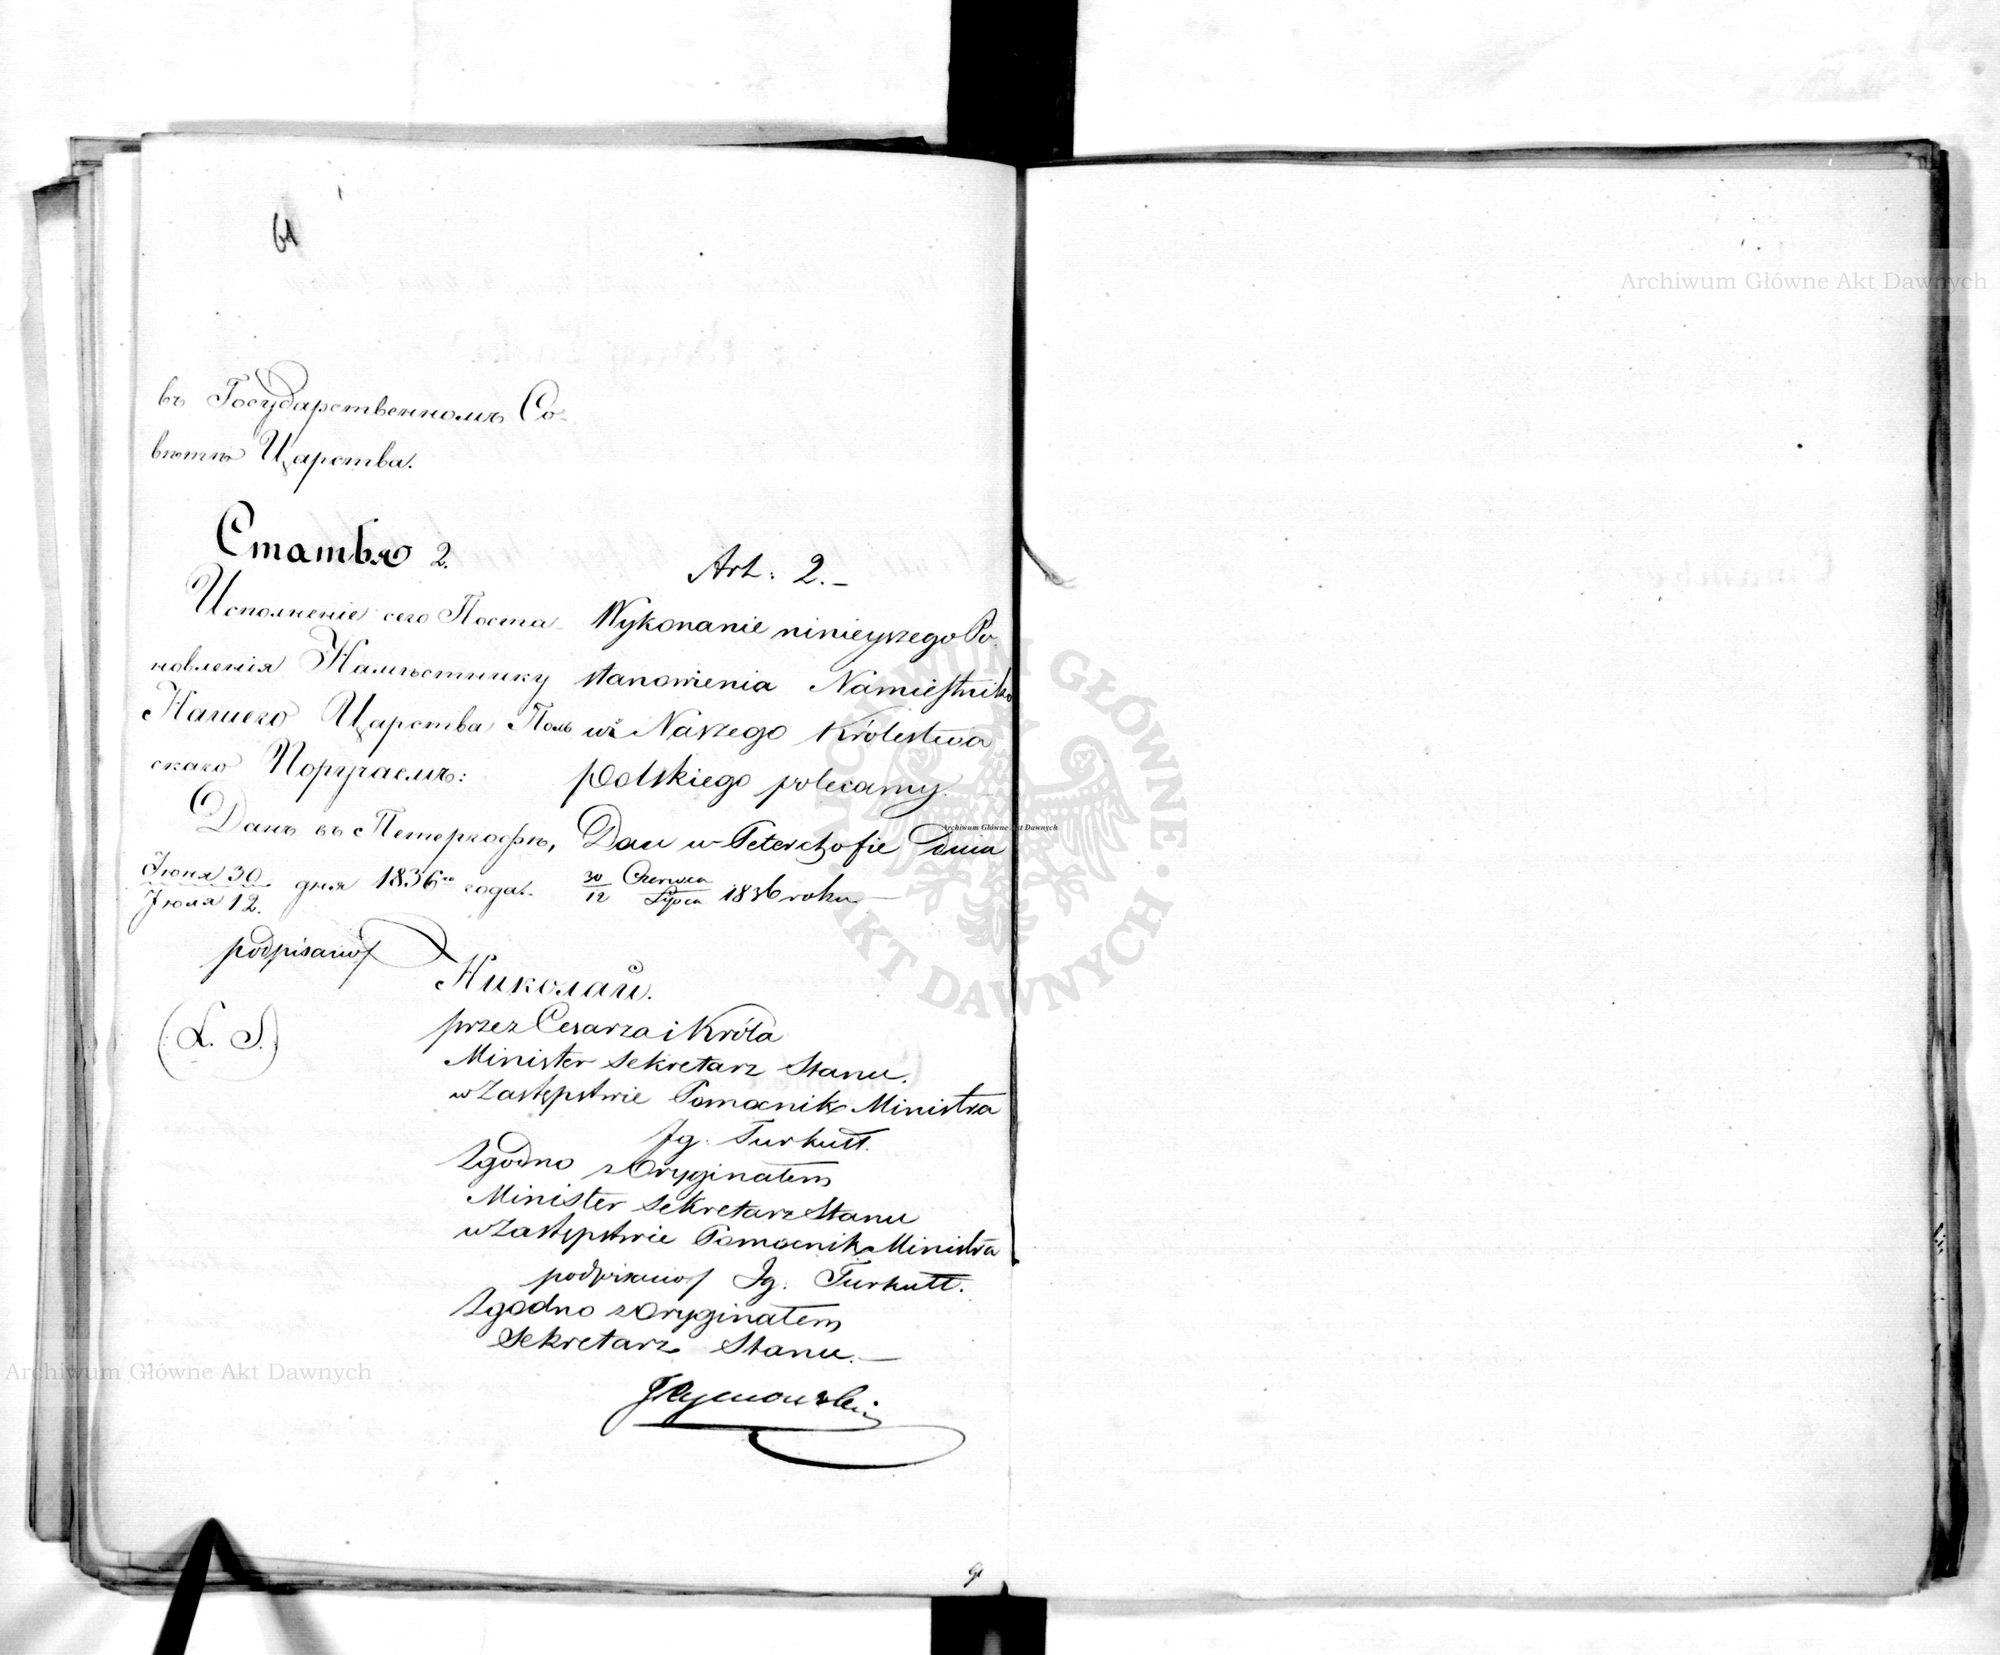 61
въ Государственномъ Со-
вѣтѣ Царства.
Статья 2.
Исполненіе сего Поста-
новленія Намѣстнику
Нашего Царства Поль
скаго Поручаемъ:
Данъ въ Петергофѣ,
Іюня 30
Іюля 12. дня 1836го года.
Art: 2.-
Wykonanie ninieyszego Po-
stanowienia Namiestniko
wi Naszego Królestwa
Polskiego polecamy.
Dan w Peterhofie dnia
30 Czerwca
12 Lipca 1836 roku
podpisano/
Николай.
(L. S.)
przez Cesarza i Króla
Minister Sekretarz Stanu.
w Zastępstwie Pomocnik Ministra
Jg. Turkułł.
Zgodno z Oryginałem
Minister Sekretarz Stanu
w Zastępstwie Pomocnik Ministra
podpisano/ Jg. Turkułł.
Zgodno z Oryginałem
Sekretarz Stanu.-
JTymowski
Archiwum Główne Akt Dawnych
Archiwum Główne Akt Dawnych
Archiwum Główne Akt Dawnych
ARCHIWUM GŁÓWNE · AKT DAWNYCH ·